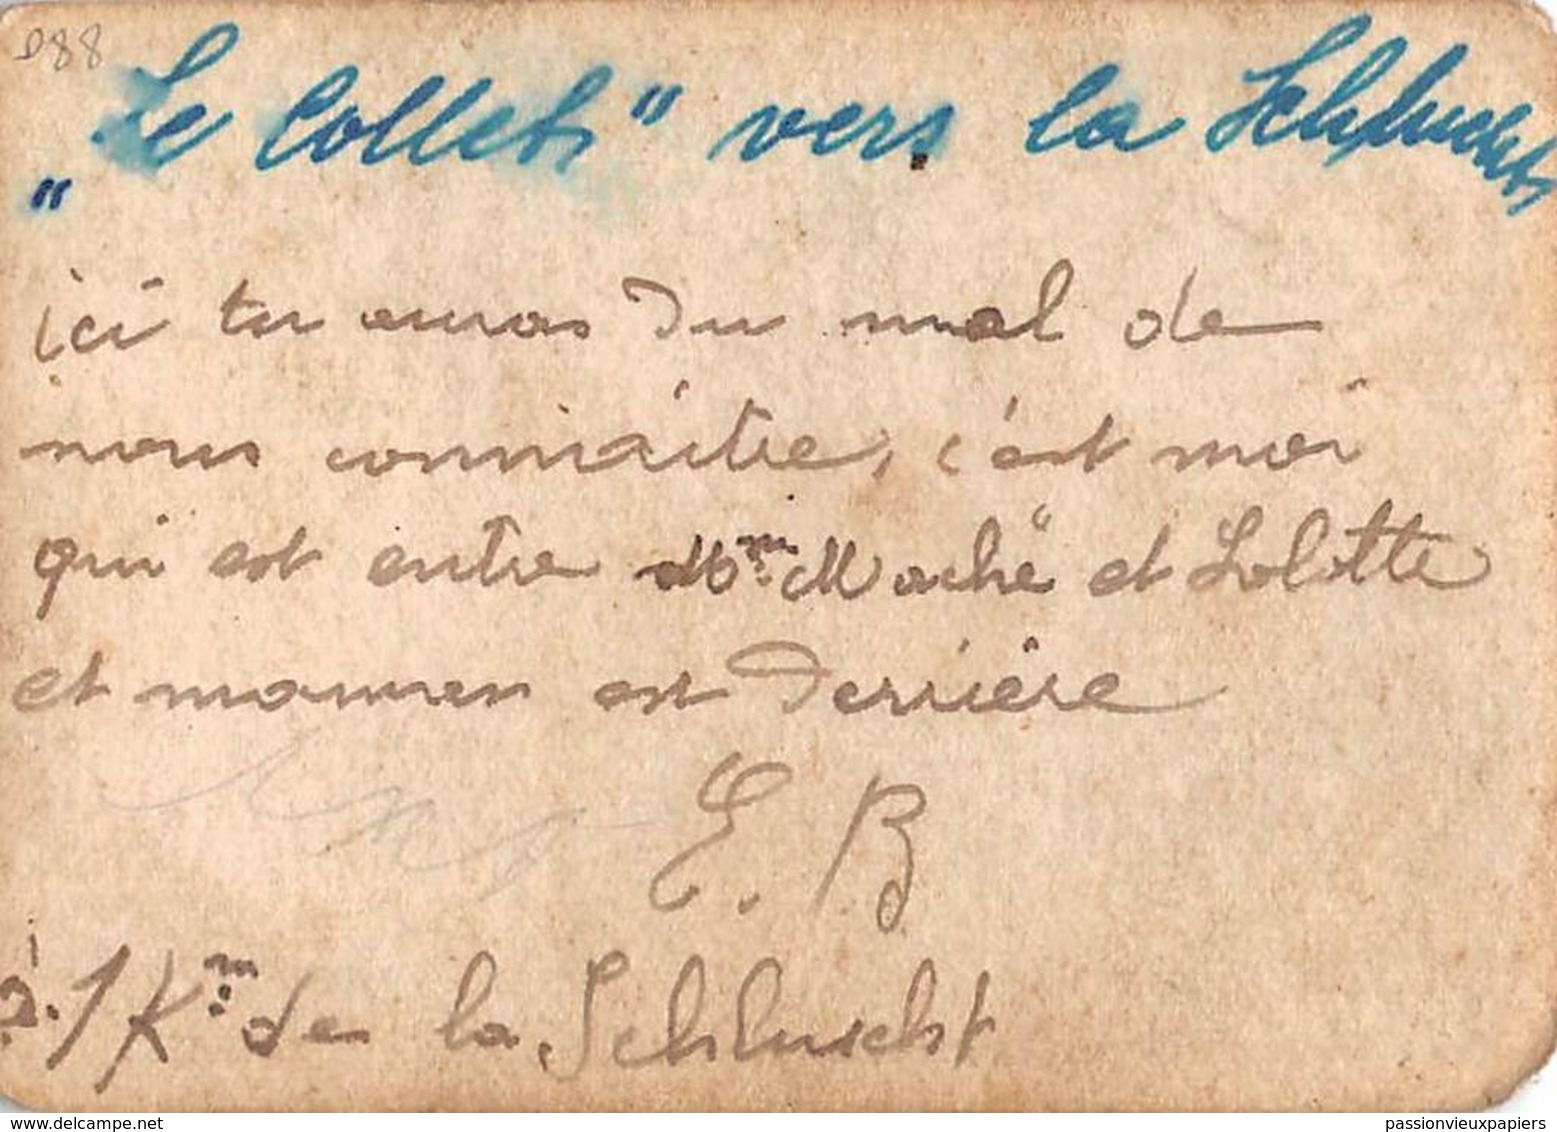 D88
"Le Collet" vers la Schlucht
ici tu auras du mal de
nous connaitre, c'est moi
qui est entre Mme Maché et Lolotte
et maman est derrière
E. B
à 1 Km de la Schluscht
delcampe.net
passionvieuxpapiers